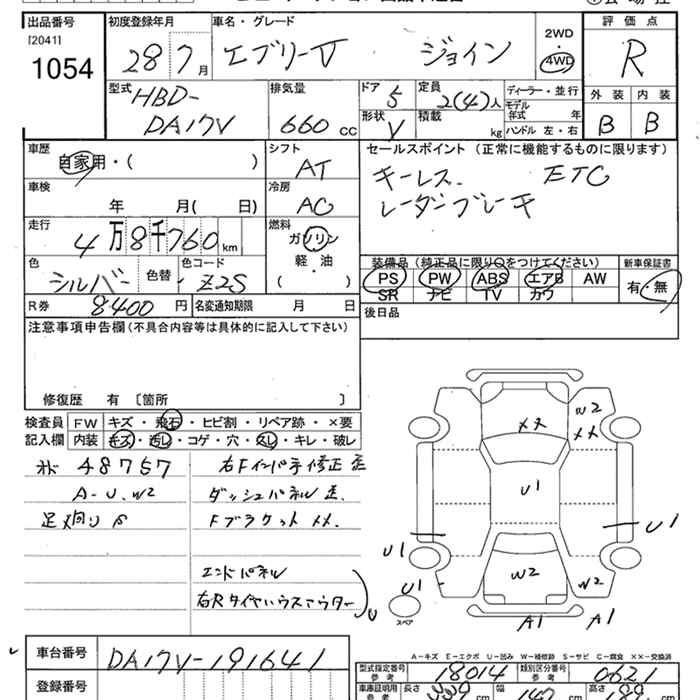 出品番号 初度登録年月 車名・グレード 評価点
[2041] 1054
28 7月 エブリーV ジョイン
2WD
4WD
R
外装 内装
B B
型式 HBD-
DA17V
排気量 660 cc
ドア 5
形状 V
定員 2(4)人
積載 kg
ディーラー・並行
モデル年式 年
ハンドル 左・右
車歴
自家用・( )
シフト
AT
セールスポイント (正常に機能するものに限ります)
キーレス. ETC
レーダーブレーキ
車検
年 月( 日)
冷房
AC
走行
4万8千760km
燃料
ガソリン
軽・油
( )
色 シルバー 色替
色コード Z2S
装備品(純正品に限り○をつけてください) 新車保証書
PS PW ABS エアB AW
SR ナビ TV カワ
有・無
R券 8400円 名変通知期限 月 日
後日品
注意事項申告欄(不具合内容等は具体的に記入して下さい)
修復歴 有 〔箇所 〕
検査員記入欄
FW キズ・飛石・ヒビ割・リペア跡・×要
内装 キズ・汚レ・コゲ・穴・スレ・キレ・破レ
48757
A-U.W2
右Fインパネ修正
ダッシュパネル
Fブラケット XX.
エンドパネル
右Rタイヤハウスアウター U
XX
W2
XX
U1
U1
U1
U1
W2
W2
A1
A1
スペア
A-キズ E-エクボ U-凹み W-補修跡 S-サビ C-腐食 XX-交換済
車台番号 DA17V-191641
登録番号
型式指定番号 参考 18014 類別区分番号 参考 0621
車庫証明用 参考 長さ cm 幅 cm 高さ cm